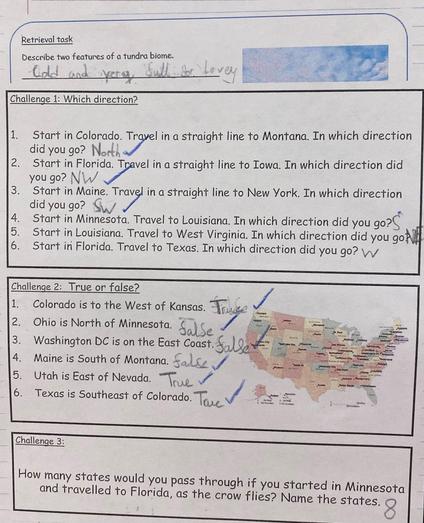 Retrieval task
Describe two features of a tundra biome.
Cold and very
Challenge 1: Which direction?
1. Start in Colorado. Travel in a straight line to Montana. In which direction
did you go? North
2. Start in Florida. Travel in a straight line to Iowa. In which direction did
you go? NW
3. Start in Maine. Travel in a straight line to New York. In which direction
did you go? SW
4. Start in Minnesota. Travel to Louisiana. In which direction did you go? S
5. Start in Louisiana. Travel to West Virginia. In which direction did you go? NE
6. Start in Florida. Travel to Texas. In which direction did you go? W
Challenge 2: True or false?
1. Colorado is to the West of Kansas. True
2. Ohio is North of Minnesota. false
3. Washington DC is on the East Coast. false
4. Maine is South of Montana. false
5. Utah is East of Nevada. True
6. Texas is Southeast of Colorado. True
Challenge 3:
How many states would you pass through if you started in Minnesota
and travelled to Florida, as the crow flies? Name the states. 8